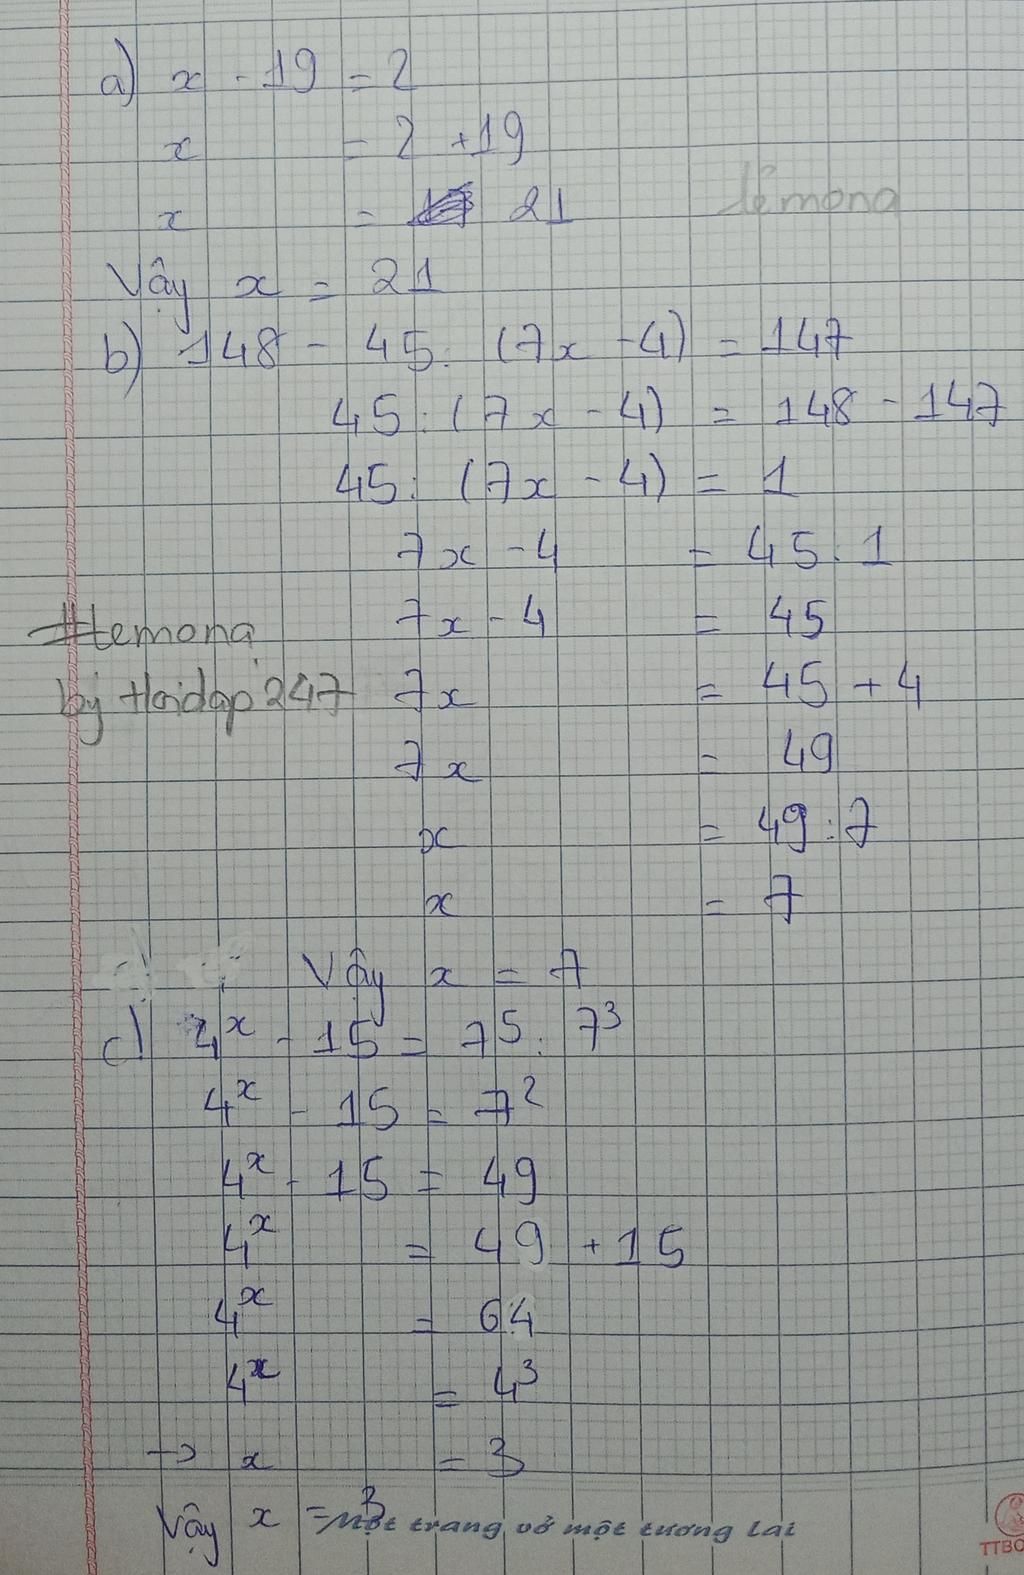 a) x - 19 = 2
x = 2 + 19
x = 21
lemona
Vậy x = 21
b) 148 - 45 : (7x - 4) = 147
45 : (7x - 4) = 148 - 147
45 : (7x - 4) = 1
7x - 4 = 45 : 1
7x - 4 = 45
#lemona
7x = 45 + 4
by Hoidap247
7x = 49
x = 49 : 7
x = 7
Vậy x = 7
c) 4ˣ - 15 = 7⁵ : 7³
4ˣ - 15 = 7²
4ˣ - 15 = 49
4ˣ = 49 + 15
4ˣ = 64
4ˣ = 4³
→ x = 3
Vậy x = 3
Một trang vở một tương lai